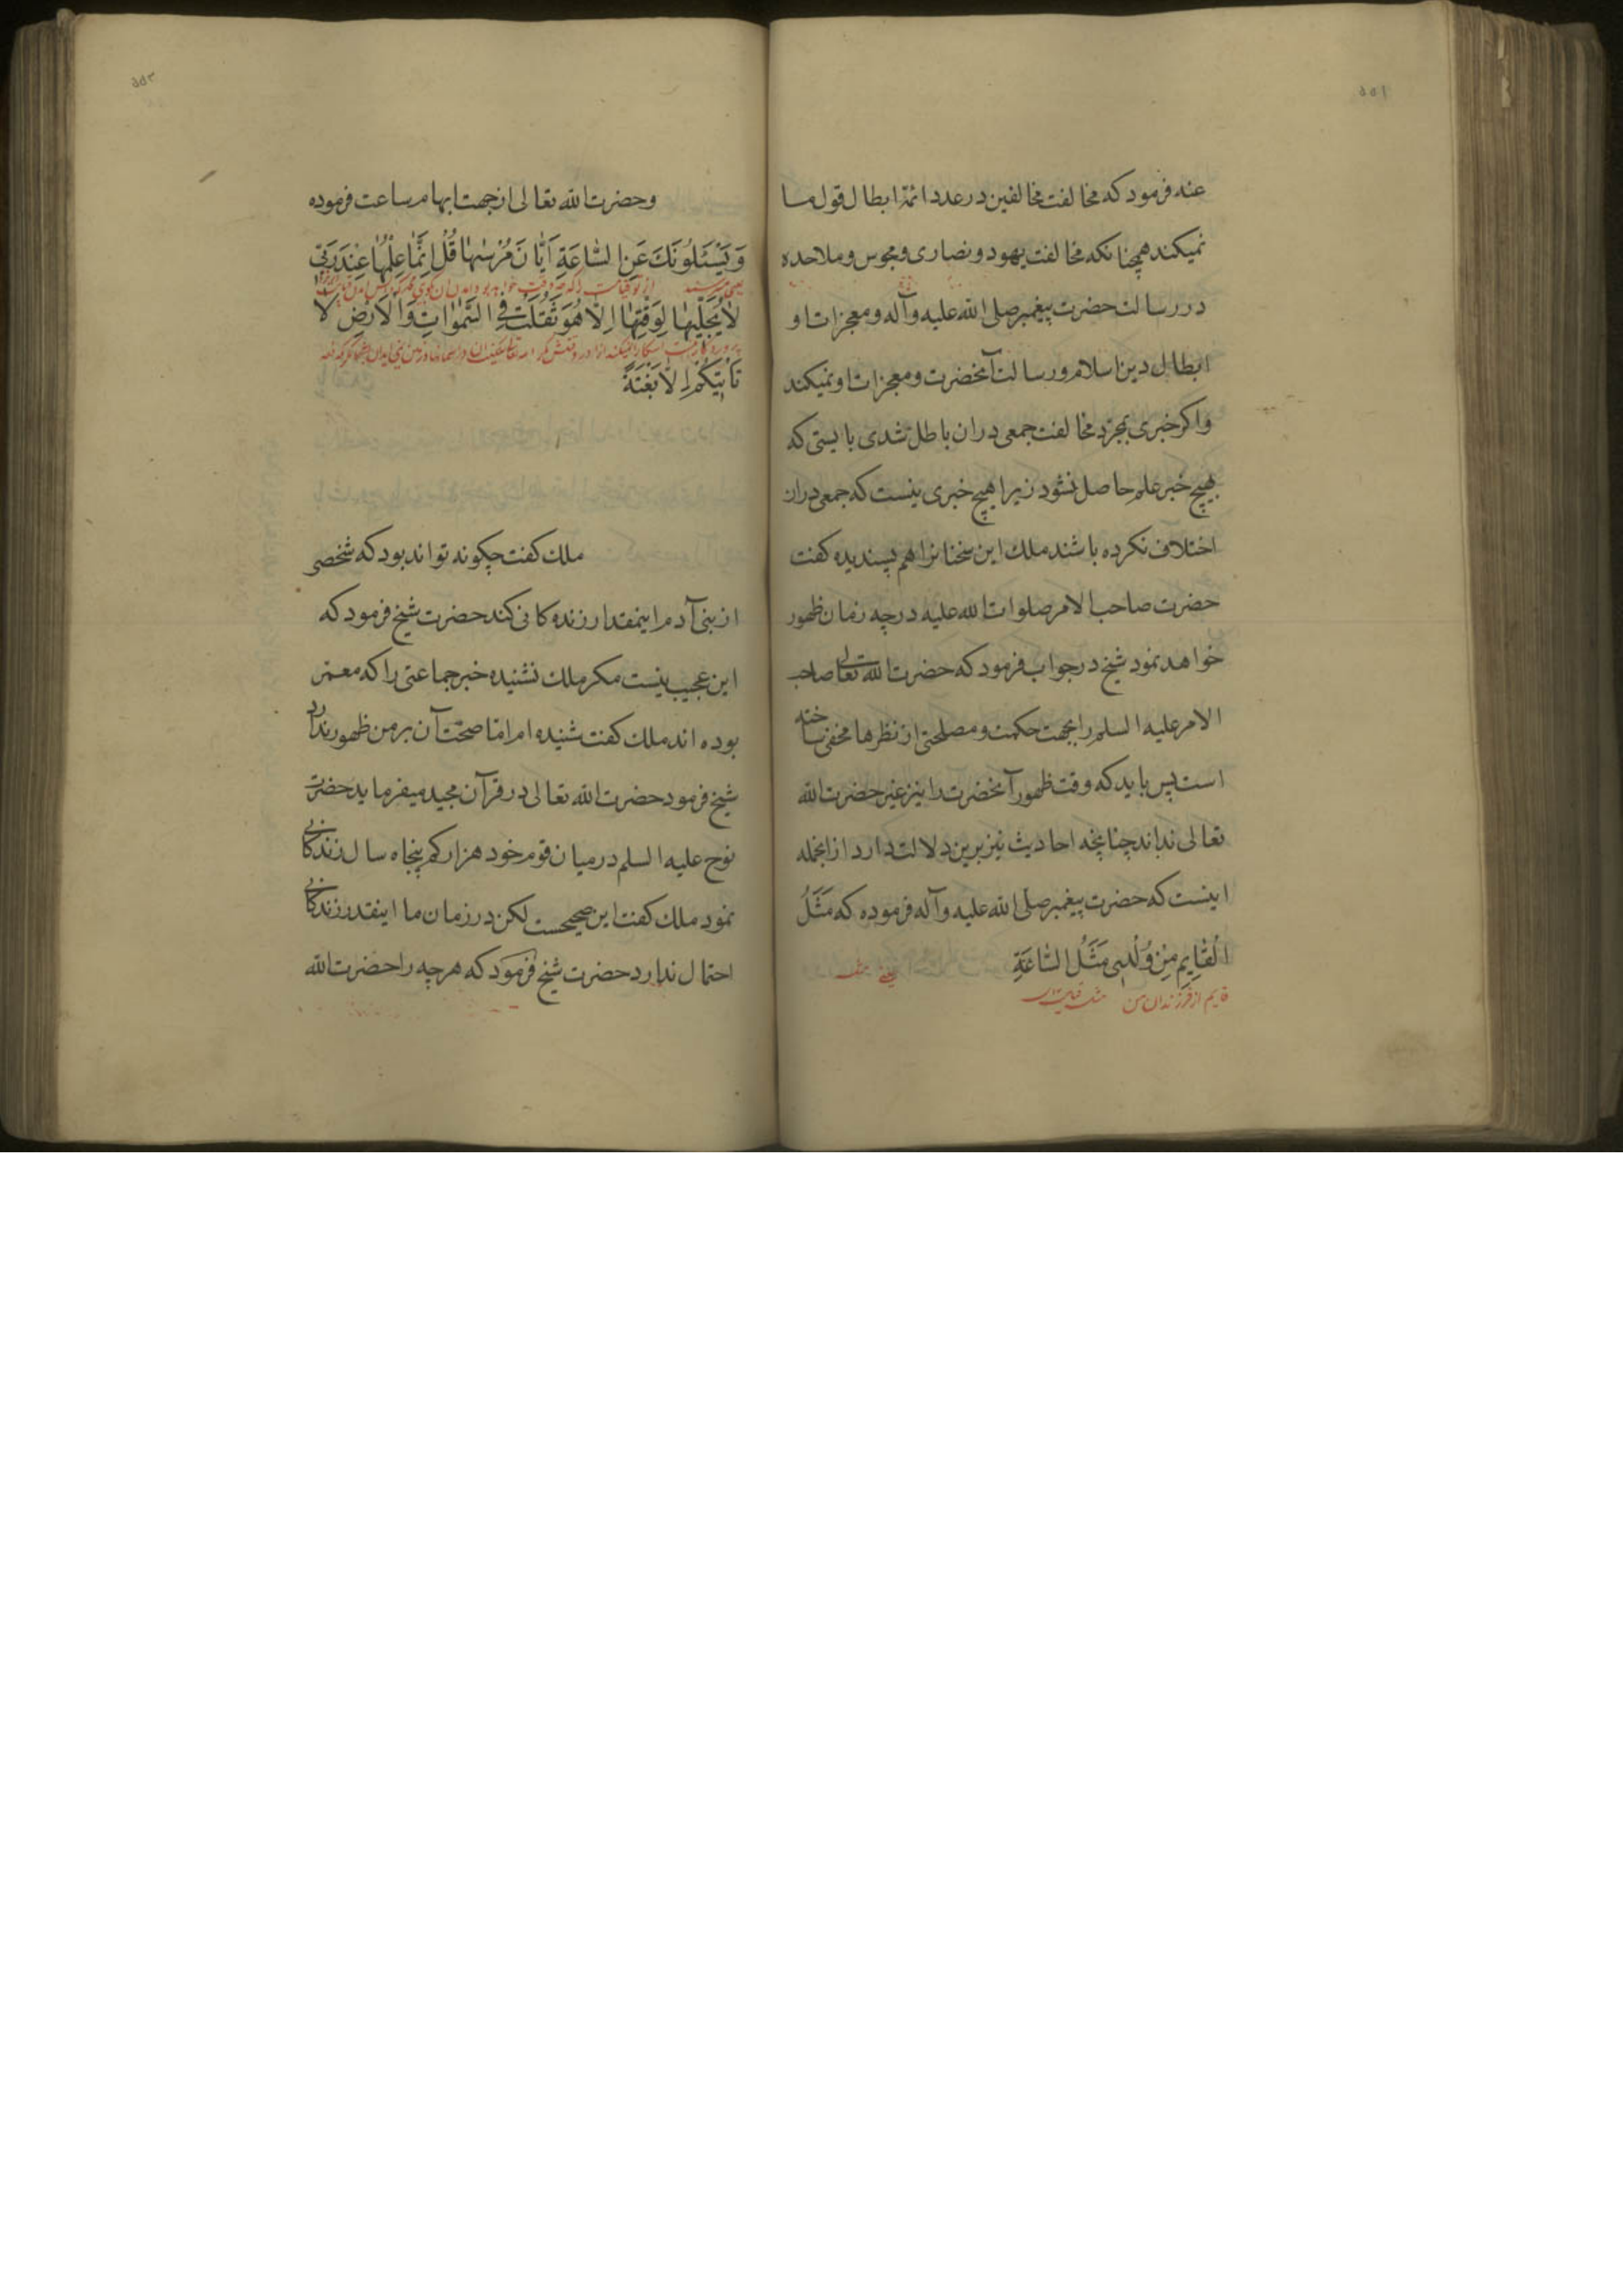 ۵۵۱
عنه فرمود که مخالفت مخالفین در عدد ائمّه ابطال قول ما
نمیکند همچنانکه مخالفت یهود و نصاری و مجوس و ملاحده
در رسالت حضرت پیغمبر صلی الله علیه وآله و معجزات او
ابطال دین اسلام و رسالت آنحضرت و معجزات او نمیکند
و اکر خبری بمجرّد مخالفت جمعی دران باطل شدی بایستی که
بهیچ خبر علم حاصل نشود زیرا هیچ خبری نیست که جمعی دران
اختلاف نکرده باشند ملک این سخنانرا هم پسندیده کفت
حضرت صاحب الامر صلوات الله علیه در چه زمان ظهور
خواهد نمود شیخ در جواب فرمود که حضرت الله تعالی صاحب
الامر علیه السلم را بجهت حکمت و مصلحتی از نظرها مخفی ساخته
است پس باید که وقت ظهور آنحضرت را نیز غیر حضرت الله
تعالی نداند چنانچه احادیث نیز برین دلالت دارد از انجمله
اینست که حضرت پیغمبر صلی الله علیه وآله فرموده که مَثَلُ
الْقَایِمِ مِنْ وُلْدِی مَثَلُ السَّاعَةِ
یعنی مثل
قایم از فرزندان من مثل قیامت
۵۵۲
وحضرت الله تعالی از جهت ابهام ساعت فرموده
وَیَسْئَلُونَكَ عَنِ السَّاعَةِ اَیَّانَ مُرْسٰیهَا قُلْ اِنَّمَا عِلْمُهَا عِنْدَ رَبِّی
یعنی میپرسند از تو قیامت را که چه وقت خواهد بود
لَا یُجَلِّیهَا لِوَقْتِهَا اِلَّا هُوَ ثَقُلَتْ فِی السَّمٰوَاتِ وَالْاَرْضِ لَا
تَاْتِیکُمْ اِلَّا بَغْتَةً
ملک کفت چکونه تواند بود که شخصی
از بنی آدم اینمقدار زندکانی کند حضرت شیخ فرمود که
این عجیب نیست مکر ملک نشنیده خبر جماعتی را که معمّر
بوده اند ملک کفت شنیده ام امّا صحّت آن بر من ظهور ندارد
شیخ فرمود حضرت الله تعالی در قرآن مجید میفرماید حضرت
نوح علیه السلم در میان قوم خود هزار کم پنجاه سال زندکانی
نمود ملک کفت این صحیحست لکن در زمان ما اینقدر زندکانی
احتمال ندارد حضرت شیخ فرمود که هرچه را حضرت الله